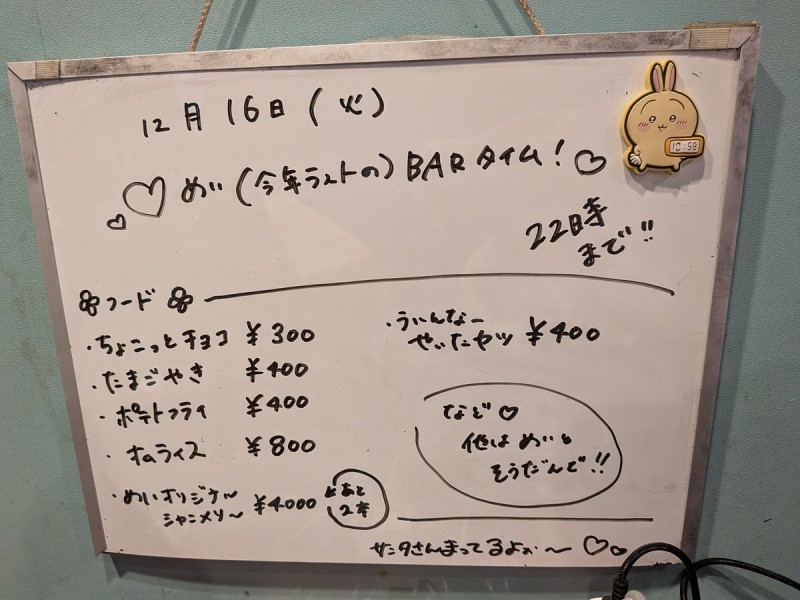 12月16日(火)
♡めい(今年ラストの)BARタイム!♡
22時まで!!
10:58
フード
・ちょこっとチョコ ¥300
・たまごやき ¥400
・ポテトフライ ¥400
・オムライス ¥800
・めいオリジナル シャンメリー ¥4000 あと2本
・ういんなー やいたヤツ ¥400
など♡
他はめいも
そうだんで!!
サンタさんまってるよぉ〜♡